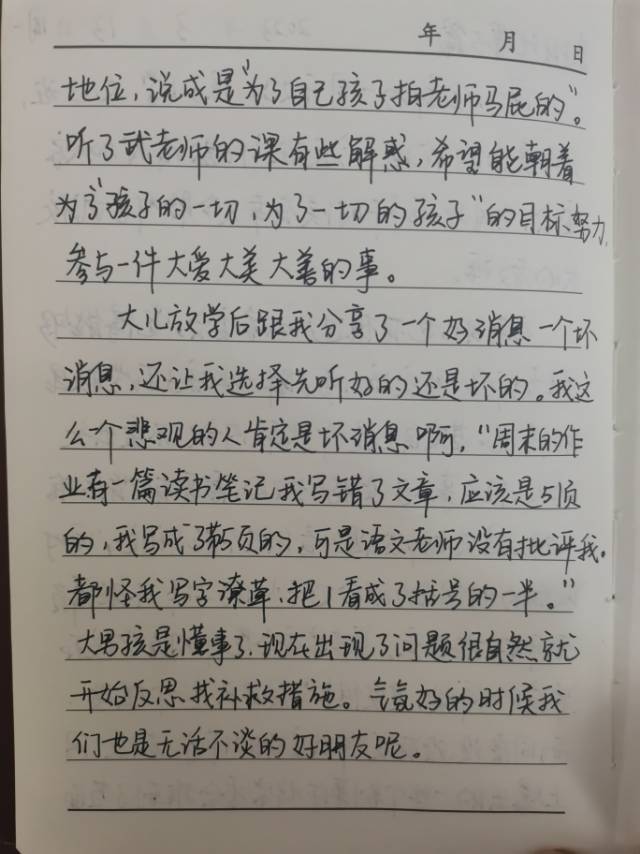 年 月 日
地位，说成是“为了自己孩子拍老师马屁的”。
听了武老师的课有些解惑，希望能朝着
为了“孩子的一切，为了一切的孩子”的目标努力，
参与一件大爱大美大善的事。
大儿放学后跟我分享了一个好消息一个坏
消息，还让我选择先听好的还是坏的。我这
么个悲观的人肯定是坏消息啊，“周末的作
业有一篇读书笔记我写错了文章，应该是51页
的，我写成了第5页的，可是语文老师没有批评我。
都怪我写字潦草，把1看成了括号的一半。”
大男孩是懂事了，现在出现了问题很自然就
开始反思找补救措施。氛围好的时候我
们也是无话不谈的好朋友呢。